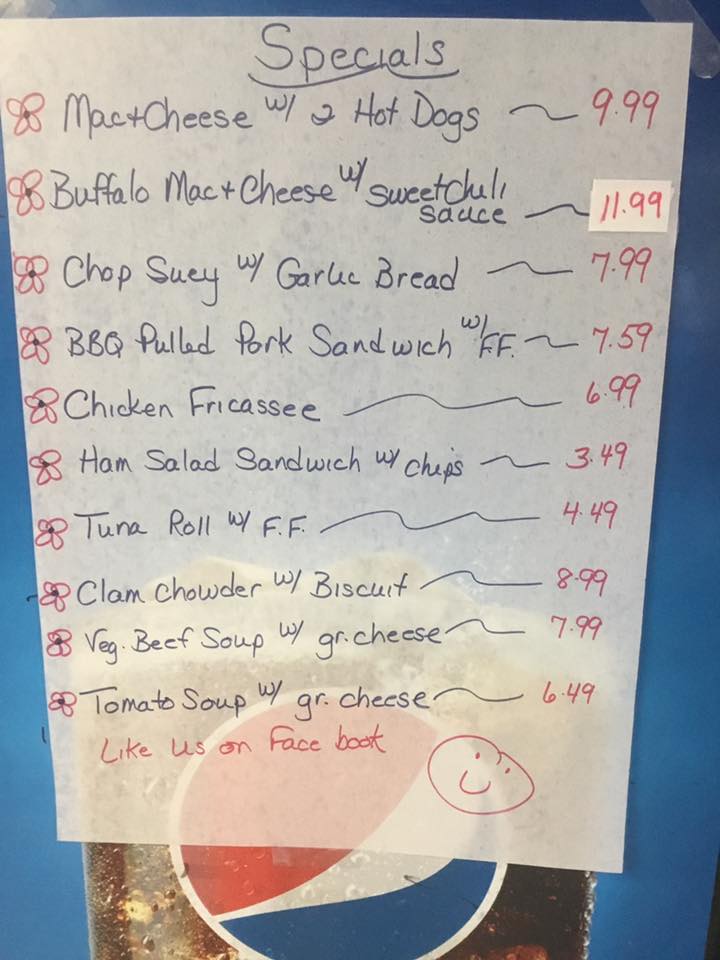 Specials
Mac+Cheese w/ 2 Hot Dogs 9.99
Buffalo Mac+Cheese w/ sweet chili
sauce 11.99
Chop Suey w/ Garlic Bread 7.99
BBQ Pulled Pork Sandwich w/ F.F. 7.59
Chicken Fricassee 6.99
Ham Salad Sandwich w/ chips 3.49
Tuna Roll w/ F.F. 4.49
Clam Chowder w/ Biscuit 8.99
Veg. Beef Soup w/ gr. cheese 7.99
Tomato Soup w/ gr. cheese 6.49
Like us on Face book